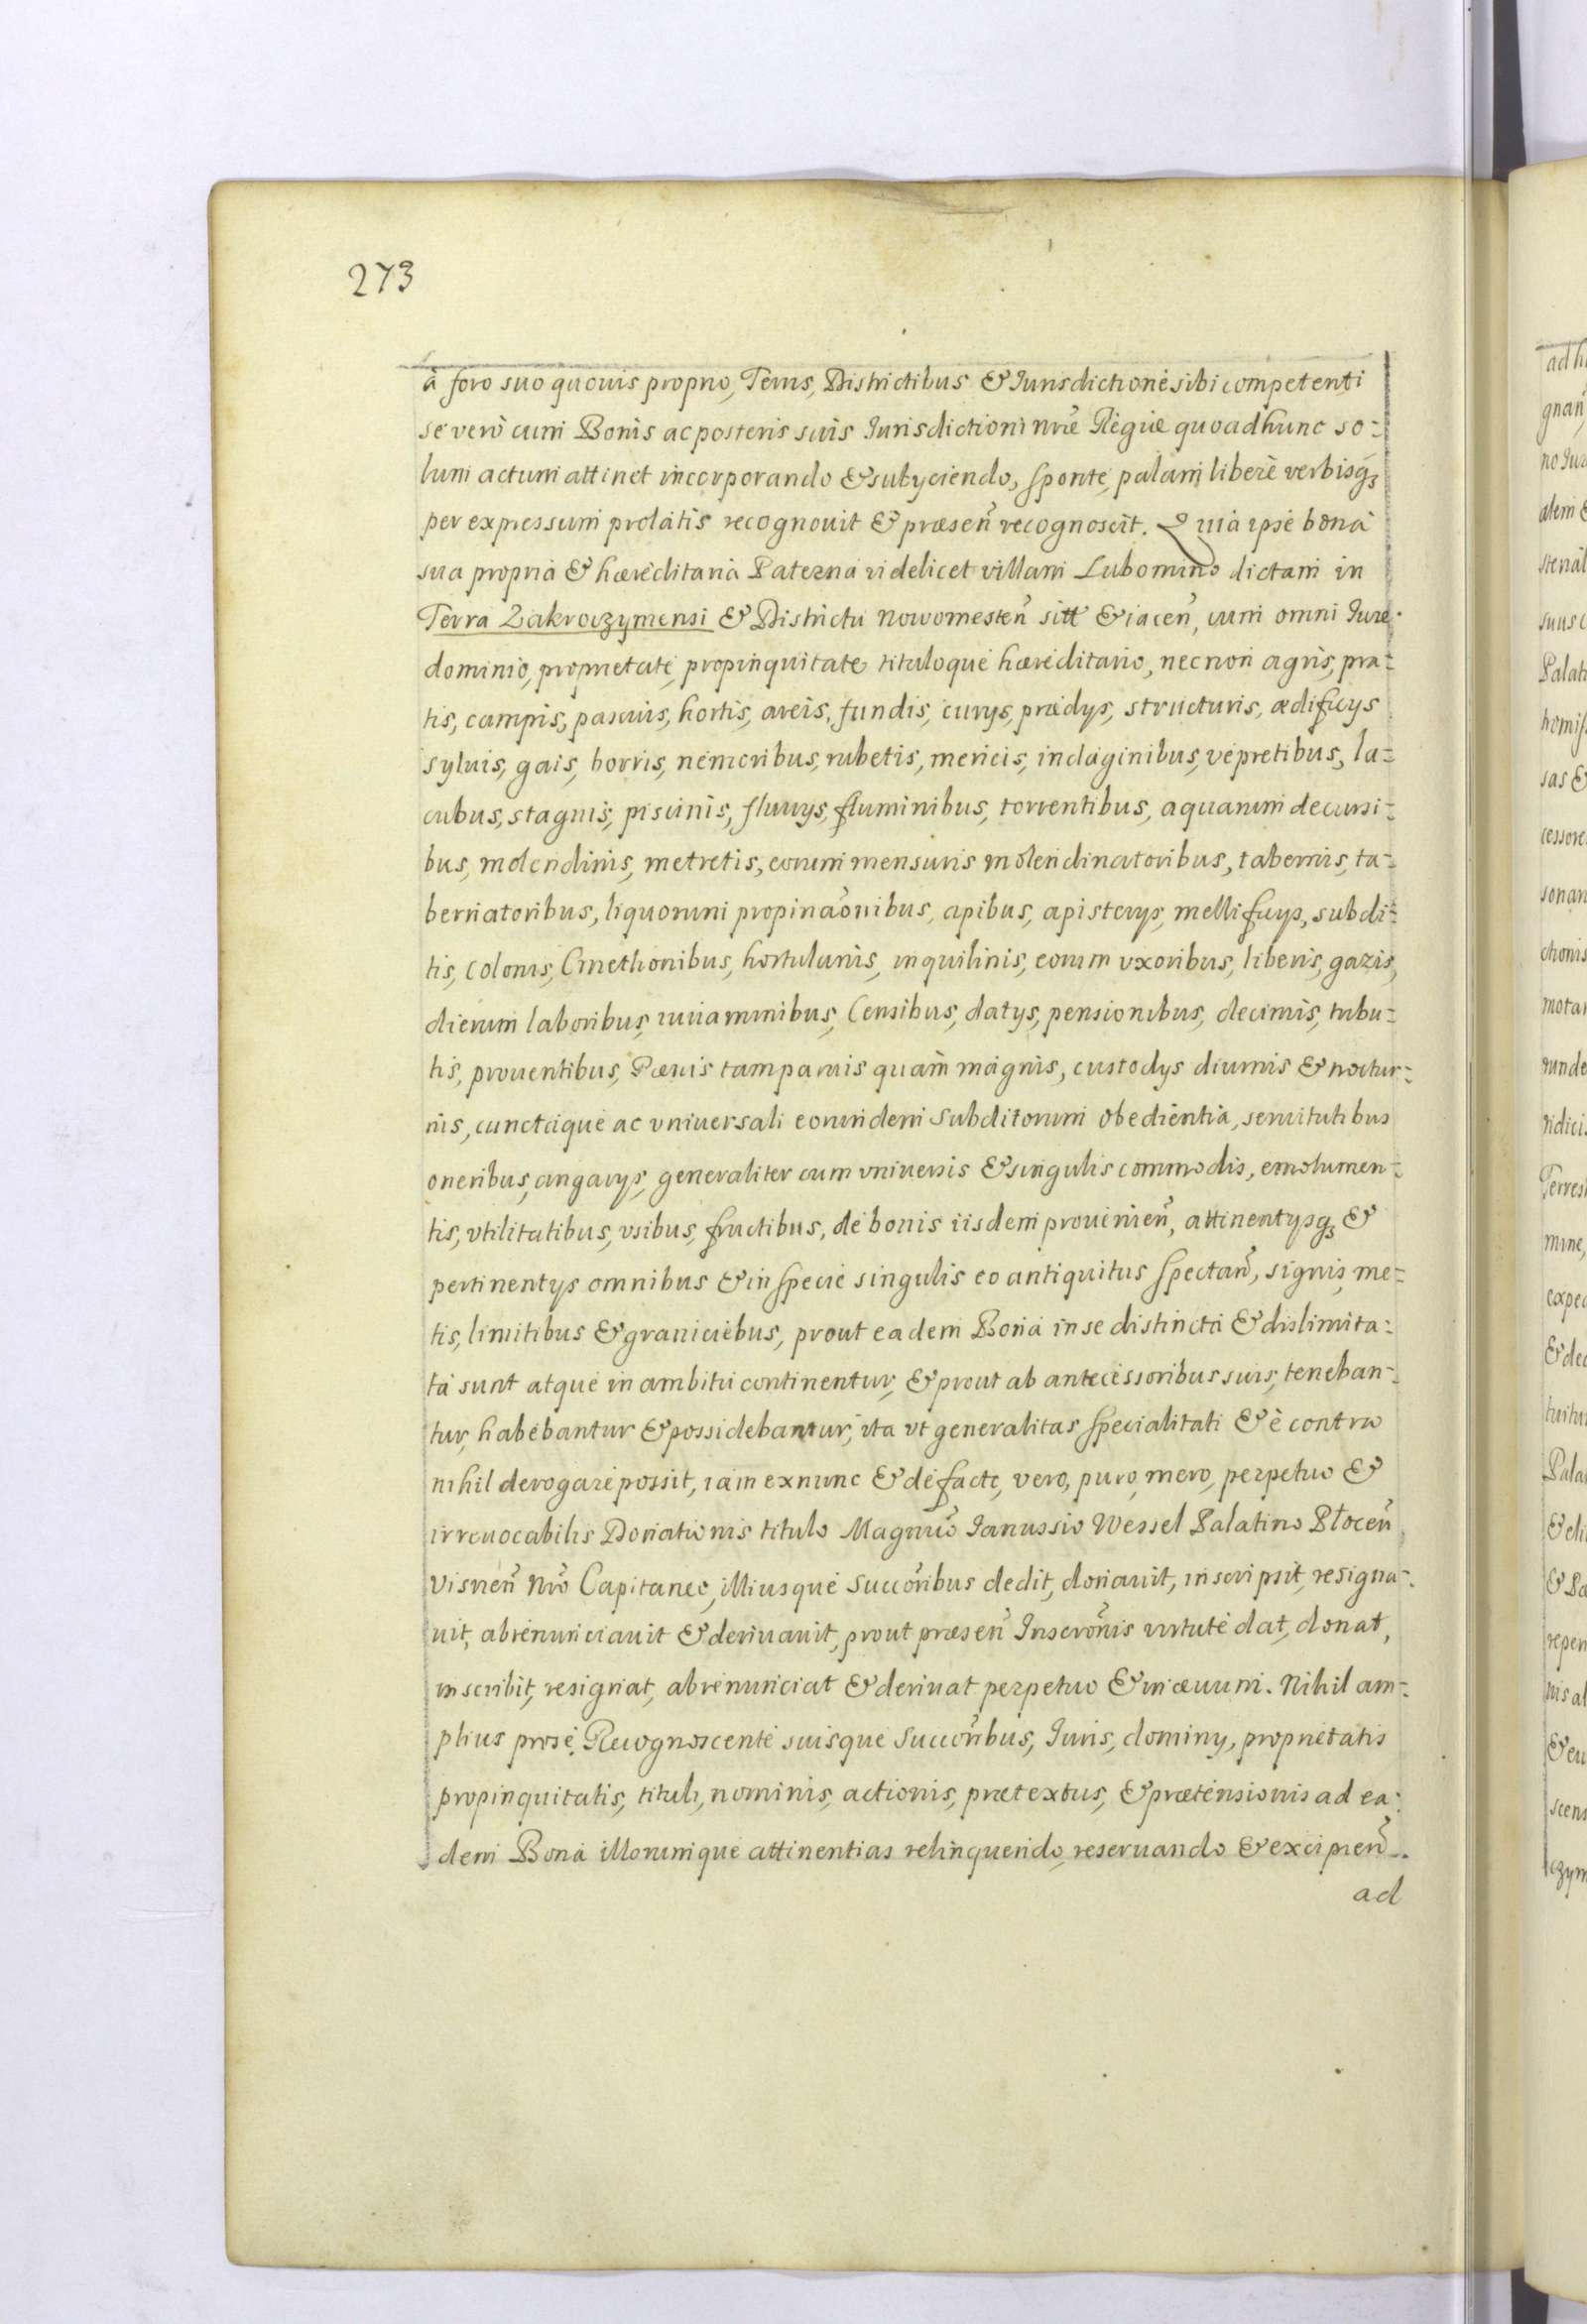 273
à foro suo quouis proprio, Terris, Districtibus & Jurisdictione sibi competenti
se verò cum Bonis ac posteris suis Jurisdictioni nrãe Regiæ quoad hunc so-
lum actum attinet incorporando & subyciendo, sponte, palam libere verbisq3
per expressum prolatis recognouit & præseñ recognoscit. Quia ipse bona
sua propria & hæreditaria Paterna videlicet villam Lubomino dictam in
Terra Zakroczymensi & Districtu Nowomesteñ sitt & iaceñ, cum omni Jure
dominio, proprietate, propinquitate tituloque hæreditario, necnon agris, pra-
tis, campis, pascuis, hortis, areis, fundis, curys, prædys, structuris, ædificys
syluis, gais, borris, nemoribus, rubetis, mericis, indaginibus, vepretibus, la-
cubus, stagnis, piscinis, fluuys, fluminibus, torrentibus, aquarum decursi-
bus, molendinis, metretis, eorum mensuris molendinatoribus, tabernis, ta-
bernatoribus, liquorum propinaõnibus, apibus, apisterys, mellificys, subdi-
tis, Colonis, Cmethonibus, hortulanis, inquilinis, eorum vxoribus, liberis, gazis,
dierum laboribus, iuuaminibus, Censibus, datys, pensionibus, decimis, tribu-
tis, prouentibus, Pænis tam paruis quam magnis, custodys diurnis & noctur-
nis, cunctaque ac vniuersali eorundem subditorum obedientia, seruitutibus
oneribus, angarys, generaliter cum vniuersis & singulis commodis, emolumen-
tis, vtilitatibus, vsibus, fructibus, de bonis iisdem prouenieñ, attinentysq3 &
pertinentys omnibus & in specie singulis eo antiquitus spectañ, signis, me-
tis, limitibus & graniciebus, prout eadem Bona in se distincta & dislimita-
ta sunt atque in ambitu continentur, & prout ab antecessoribus suis, teneban-
tur, habebantur & possidebantur, ita vt generalitas specialitati & è contra
nihil derogare possit, iam exnunc & de facto, vero, puro, mero, perpetuo &
irreuocabilis Donationis titulo Magnco Janussio Wessel Palatino Ploceñ
Visneñ Nrõ Capitaneo, illiusque succoribus dedit, donauit, inscripsit, resigna-
uit, abrenunciauit & deriuauit, prout præseñ Inscronis virtute dat, donat,
inscribit, resignat, abrenunciat & deriuat perpetuo & in æuum. Nihil am-
plius pro se Recognoscente suisque succoribus, Juris, dominy, proprietatis
propinquitatis, tituli, nominis, actionis, prætextus, & prætensionis ad ea-
dem Bona illorumque attinentias relinquendo, reseruando & excipieñ
ad